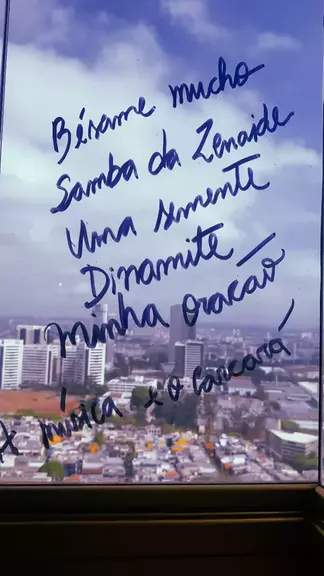 Bésame mucho
Samba da Zenaide
Uma semente
Dinamite
Minha oração
A música e o Carcará